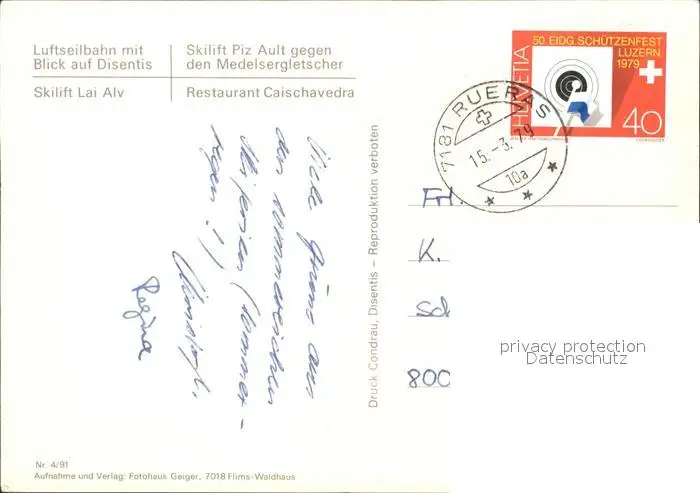 Luftseilbahn mit
Blick auf Disentis
Skilift Piz Ault gegen
den Medelsergletscher
Skilift Lai Alv
Restaurant Caischavedra
50. EIDG. SCHÜTZENFEST
LUZERN
1979
HELVETIA
40
7181 RUERAS
15.-3.79
10a
Viele Grüsse aus
den
Skiferien (Sommer-
regen !)
Regina
Druck Condrau, Disentis – Reproduktion verboten
Frl.
K.
Sch
800
privacy protection
Datenschutz
Nr. 4/91
Aufnahme und Verlag: Fotohaus Geiger, 7018 Flims-Waldhaus